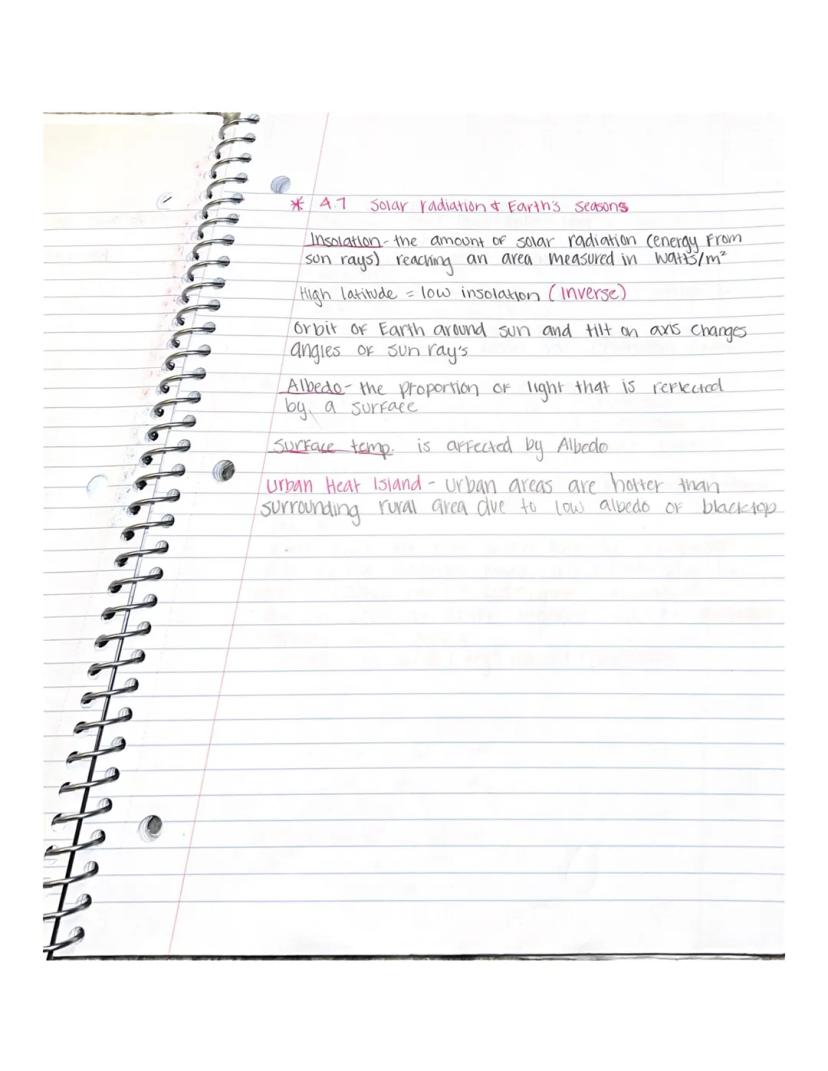 * 4.7 Solar radiation & Earth's Seasons
Insolation - the amount of solar radiation (energy from
sun rays) reaching an area measured in watts/m²
High latitude = low insolation (Inverse)
Orbit of Earth around sun and tilt on axis changes
angles of sun ray's
Albedo - the proportion of light that is reflected
by a surface
Surface temp. is affected by Albedo
Urban Heat Island - urban areas are hotter than
surrounding rural area due to low albedo of blacktop